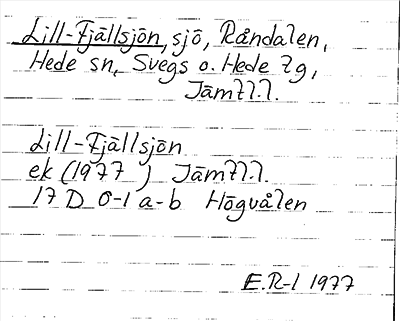 Lill-Fjällsjön, sjö, Råndalen,
Hede sn, Svegs o. Hede tg,
Jämtl.l.
Lill-Fjällsjön
ek (1977 ) Jämtl.l.
17 D 0-1 a-b Högvålen
E.R-l 1977